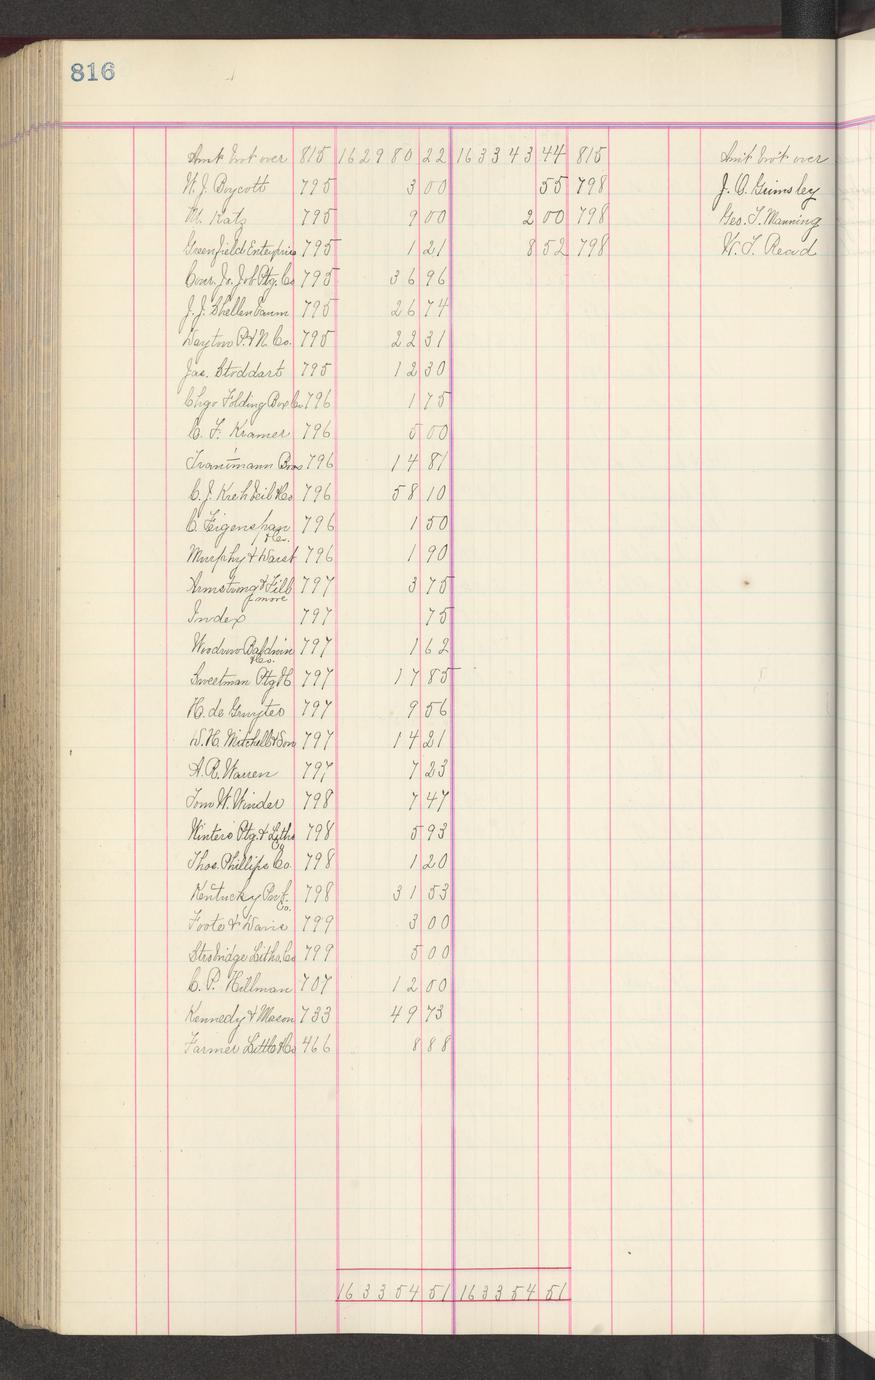 816
Amt brot over 815 162980 22 163343 44 815 Amt brot over
W. J. Boycott 795 3 00 55 798 J. O. Grimsley
M. Katz 795 9 00 2 00 798 Geo. T. Manning
Greenfield Enterprise 795 1 21 8 52 798 W. T. Read
Cour. Jr. Job Ptg. Co 795 36 96
J. J. Shellenbaum 795 26 74
Dayton P. & N. Co. 795 22 31
Jas. Stoddart 795 12 30
Chgo Folding Box Co 796 1 75
C. F. Kramer 796 5 00
Trautmann Bros 796 14 81
C. J. Krehbeil & Co 796 58 10
C. Feigenspan & Co. 796 1 50
Murphy & 796 1 90
Armstrong & Fillmore 797 3 75
Index 797 75
Woodrow Baldwin & Co. 797 1 62
Sweetman Ptg H 797 17 85
H. de Gruyter 797 9 56
W. H. Mitchell & Son 797 14 21
A. R. Warren 797 7 23
Tom W. Winder 798 7 47
Winters Ptg. & Litho Co 798 5 93
Thos. Phillips Co. 798 1 20
Kentucky Co. 798 31 53
Foote & Davis 799 3 00
Strobridge Litho. Co 799 5 00
C. P. Hillman 707 12 00
Kennedy & Mason 733 49 73
Farmer Little & Co 466 8 88
163354 51 163354 51